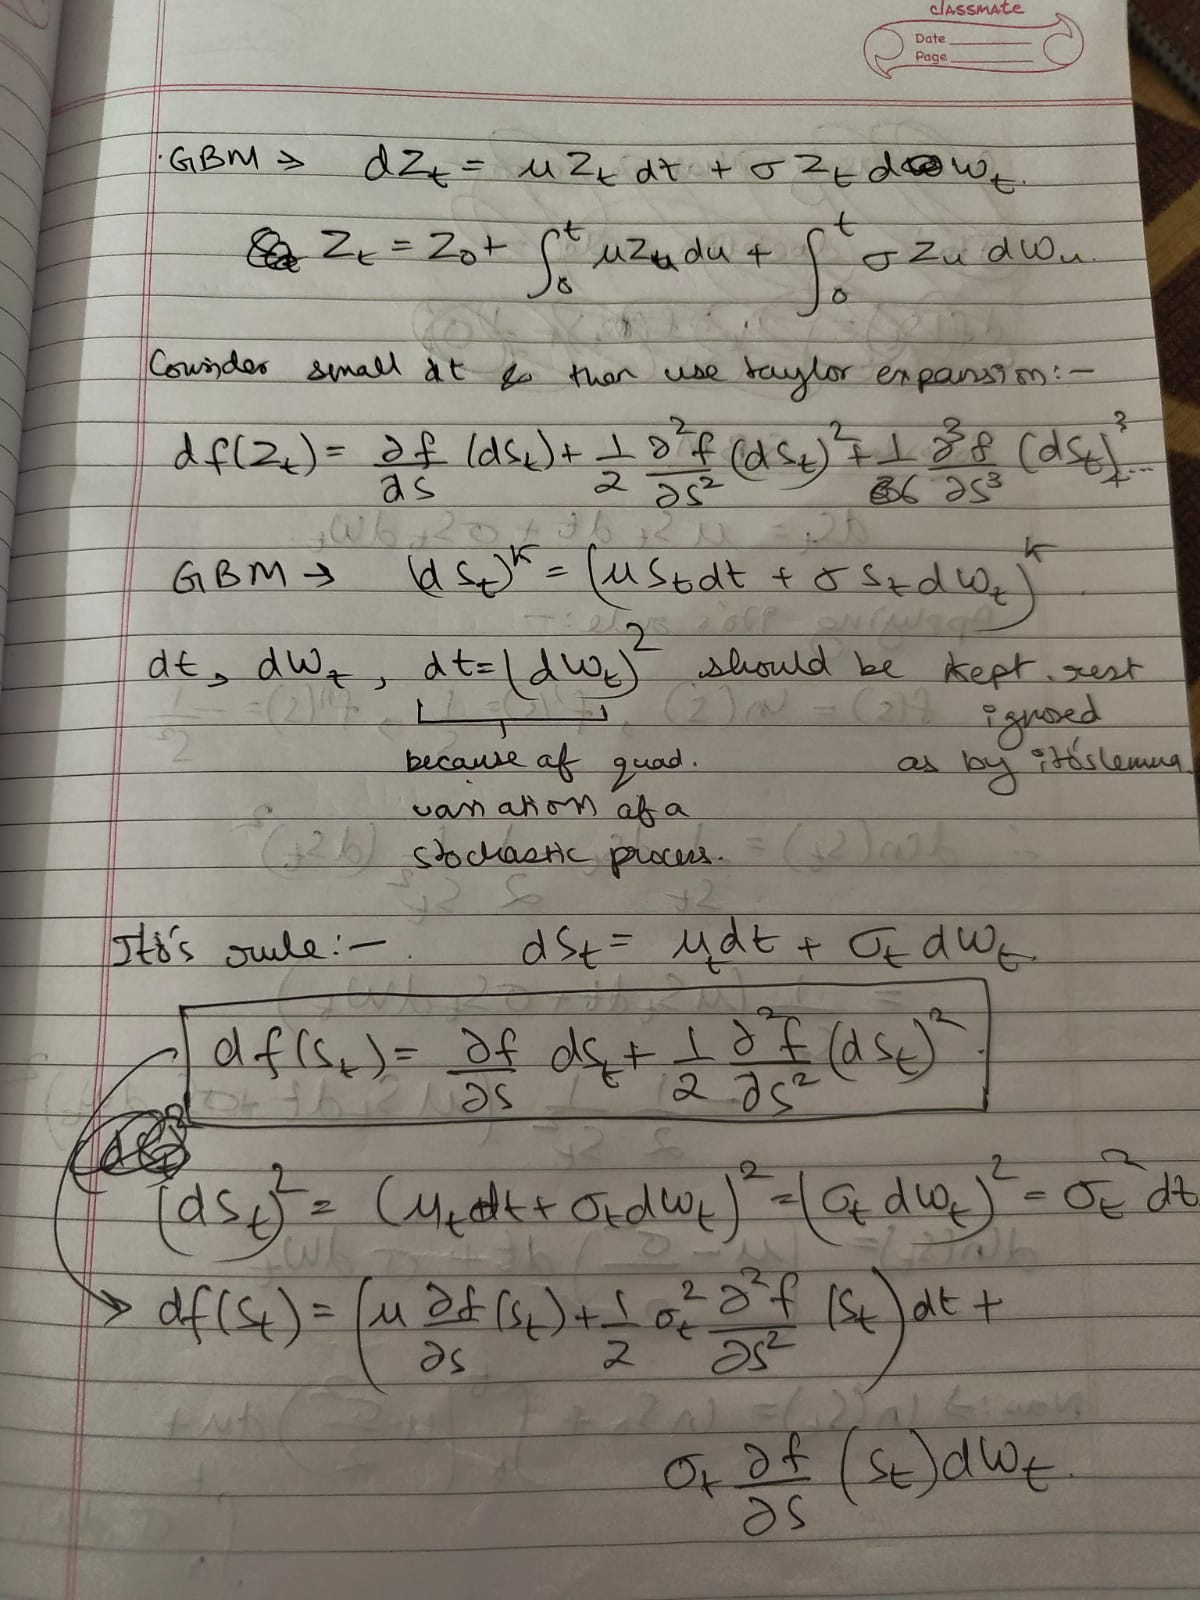 classmate
Date
Page
GBM → dZₜ = μ Zₜ dt + σ Zₜ d Wₜ.
Zₜ = Z₀ + ∫₀ᵗ μZᵤ du + ∫₀ᵗ σ Zᵤ dWᵤ.
Consider small dt & then use taylor expansion:-
df(Zₜ) = ∂f/∂s (dSₜ) + 1/2 ∂²f/∂s² (dSₜ)² + 1/6 ∂³f/∂s³ (dSₜ)³ + ...
GBM → (dSₜ)ᴷ = (μSₜdt + σSₜdWₜ)ᴷ
dt, dWₜ, dt = (dWₜ)² should be kept. rest
ignored
because of quad. as by itôslemma
variation of a
stochastic process.
Itô's rule:- dSₜ = μₜdt + σₜ dWₜ
df(Sₜ) = ∂f/∂s dSₜ + 1/2 ∂²f/∂s² (dSₜ)².
(dSₜ)² = (μₜdt + σₜdWₜ)² = (σₜ dWₜ)² = σₜ² dt
→ df(Sₜ) = (μ ∂f/∂s (Sₜ) + 1/2 σₜ² ∂²f/∂s² (Sₜ)) dt +
σₜ ∂f/∂s (Sₜ) dWₜ.